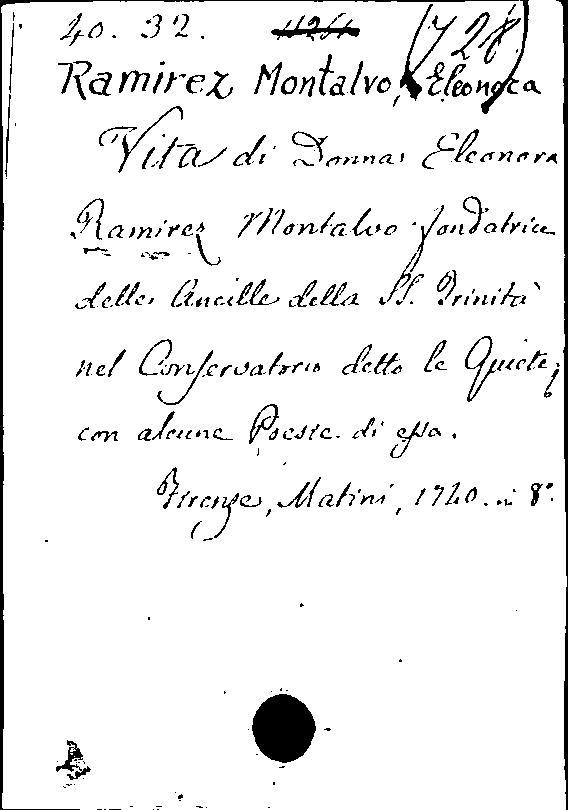 40. 32. (728)
Ramirez Montalvo, Eleonora
Vita di Donna Eleonora
Ramirez Montalvo fondatrice
delle Ancille della SS. Trinità
nel Conservatorio detto le Quiete;
con alcune Poesie di essa.
Firenze, Matini, 1740. in 8°.